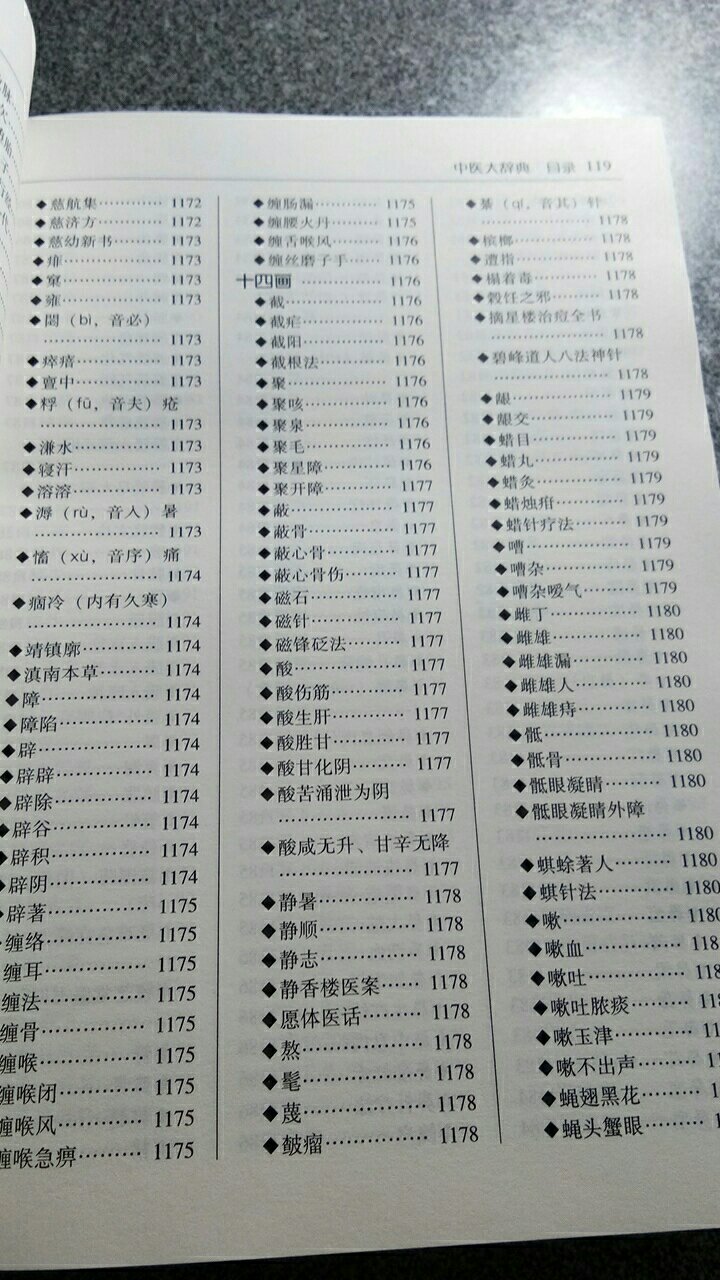 中医大辞典 目录 119
◆慈航集………… 1172
◆慈济方………… 1172
◆慈幼新书……… 1173
◆痱…………… 1173
◆窠…………… 1173
◆雍…………… 1173
◆閟（bì，音必）
………………… 1173
◆瘁瘖………… 1173
◆亶中………… 1173
◆粰（fū，音夫）疮
………………… 1173
◆溓水………… 1173
◆寝汗………… 1173
◆溶溶………… 1173
◆溽（rù，音入）暑
………………… 1173
◆慉（xù，音序）痛
………………… 1174
◆痼冷（内有久寒）
………………… 1174
◆靖镇廓……… 1174
◆滇南本草…… 1174
◆障…………… 1174
◆障陷………… 1174
◆辟…………… 1174
◆辟辟………… 1174
◆辟除………… 1174
◆辟谷………… 1174
◆辟积………… 1174
◆辟阴………… 1174
◆辟著………… 1175
◆缠络………… 1175
缠耳………… 1175
缠法………… 1175
缠骨………… 1175
缠喉………… 1175
缠喉闭……… 1175
缠喉风……… 1175
缠喉急痹…… 1175
◆缠肠漏……… 1175
◆缠腰火丹…… 1175
◆缠舌喉风…… 1176
◆缠丝磨子手… 1176
十四画 ……… 1176
◆截…………… 1176
◆截疟………… 1176
◆截阳………… 1176
◆截根法……… 1176
◆聚…………… 1176
◆聚咳………… 1176
◆聚泉………… 1176
◆聚毛………… 1176
◆聚星障……… 1176
◆聚开障……… 1177
◆蔽…………… 1177
◆蔽骨………… 1177
◆蔽心骨……… 1177
◆蔽心骨伤…… 1177
◆磁石………… 1177
◆磁针………… 1177
◆磁锋砭法…… 1177
◆酸…………… 1177
◆酸伤筋……… 1177
◆酸生肝……… 1177
◆酸胜甘……… 1177
◆酸甘化阴…… 1177
◆酸苦涌泄为阴
………………… 1177
◆酸咸无升、甘辛无降
………………… 1177
◆静暑………… 1178
◆静顺………… 1178
◆静志………… 1178
◆静香楼医案… 1178
◆愿体医话…… 1178
◆熬…………… 1178
◆髦…………… 1178
◆蔑…………… 1178
◆皶瘤………… 1178
◆綦（qí，音其）针
………………… 1178
◆槟榔………… 1178
◆遭指………… 1178
◆榻着毒……… 1178
◆榖饪之邪…… 1178
◆摘星楼治痘全书
………………… 1178
◆碧峰道人八法神针
………………… 1178
◆龈…………… 1179
◆龈交………… 1179
◆蜡目………… 1179
◆蜡丸………… 1179
◆蜡灸………… 1179
◆蜡烛疳……… 1179
◆蜡针疗法…… 1179
◆嘈…………… 1179
◆嘈杂………… 1179
◆嘈杂嗳气…… 1179
◆雌丁………… 1180
◆雌雄………… 1180
◆雌雄漏……… 1180
◆雌雄人……… 1180
◆雌雄痔……… 1180
◆骶…………… 1180
◆骶骨………… 1180
◆骶眼凝睛…… 1180
◆骶眼凝睛外障
………………… 1180
◆蜞蜍著人…… 1180
◆蜞针法……… 1180
◆嗽…………… 118
◆嗽血………… 118
◆嗽吐………… 118
◆嗽吐脓痰…… 118
◆嗽玉津……… 11
◆嗽不出声…… 11
◆蝇翅黑花…… 1
◆蝇头蟹眼…… 1